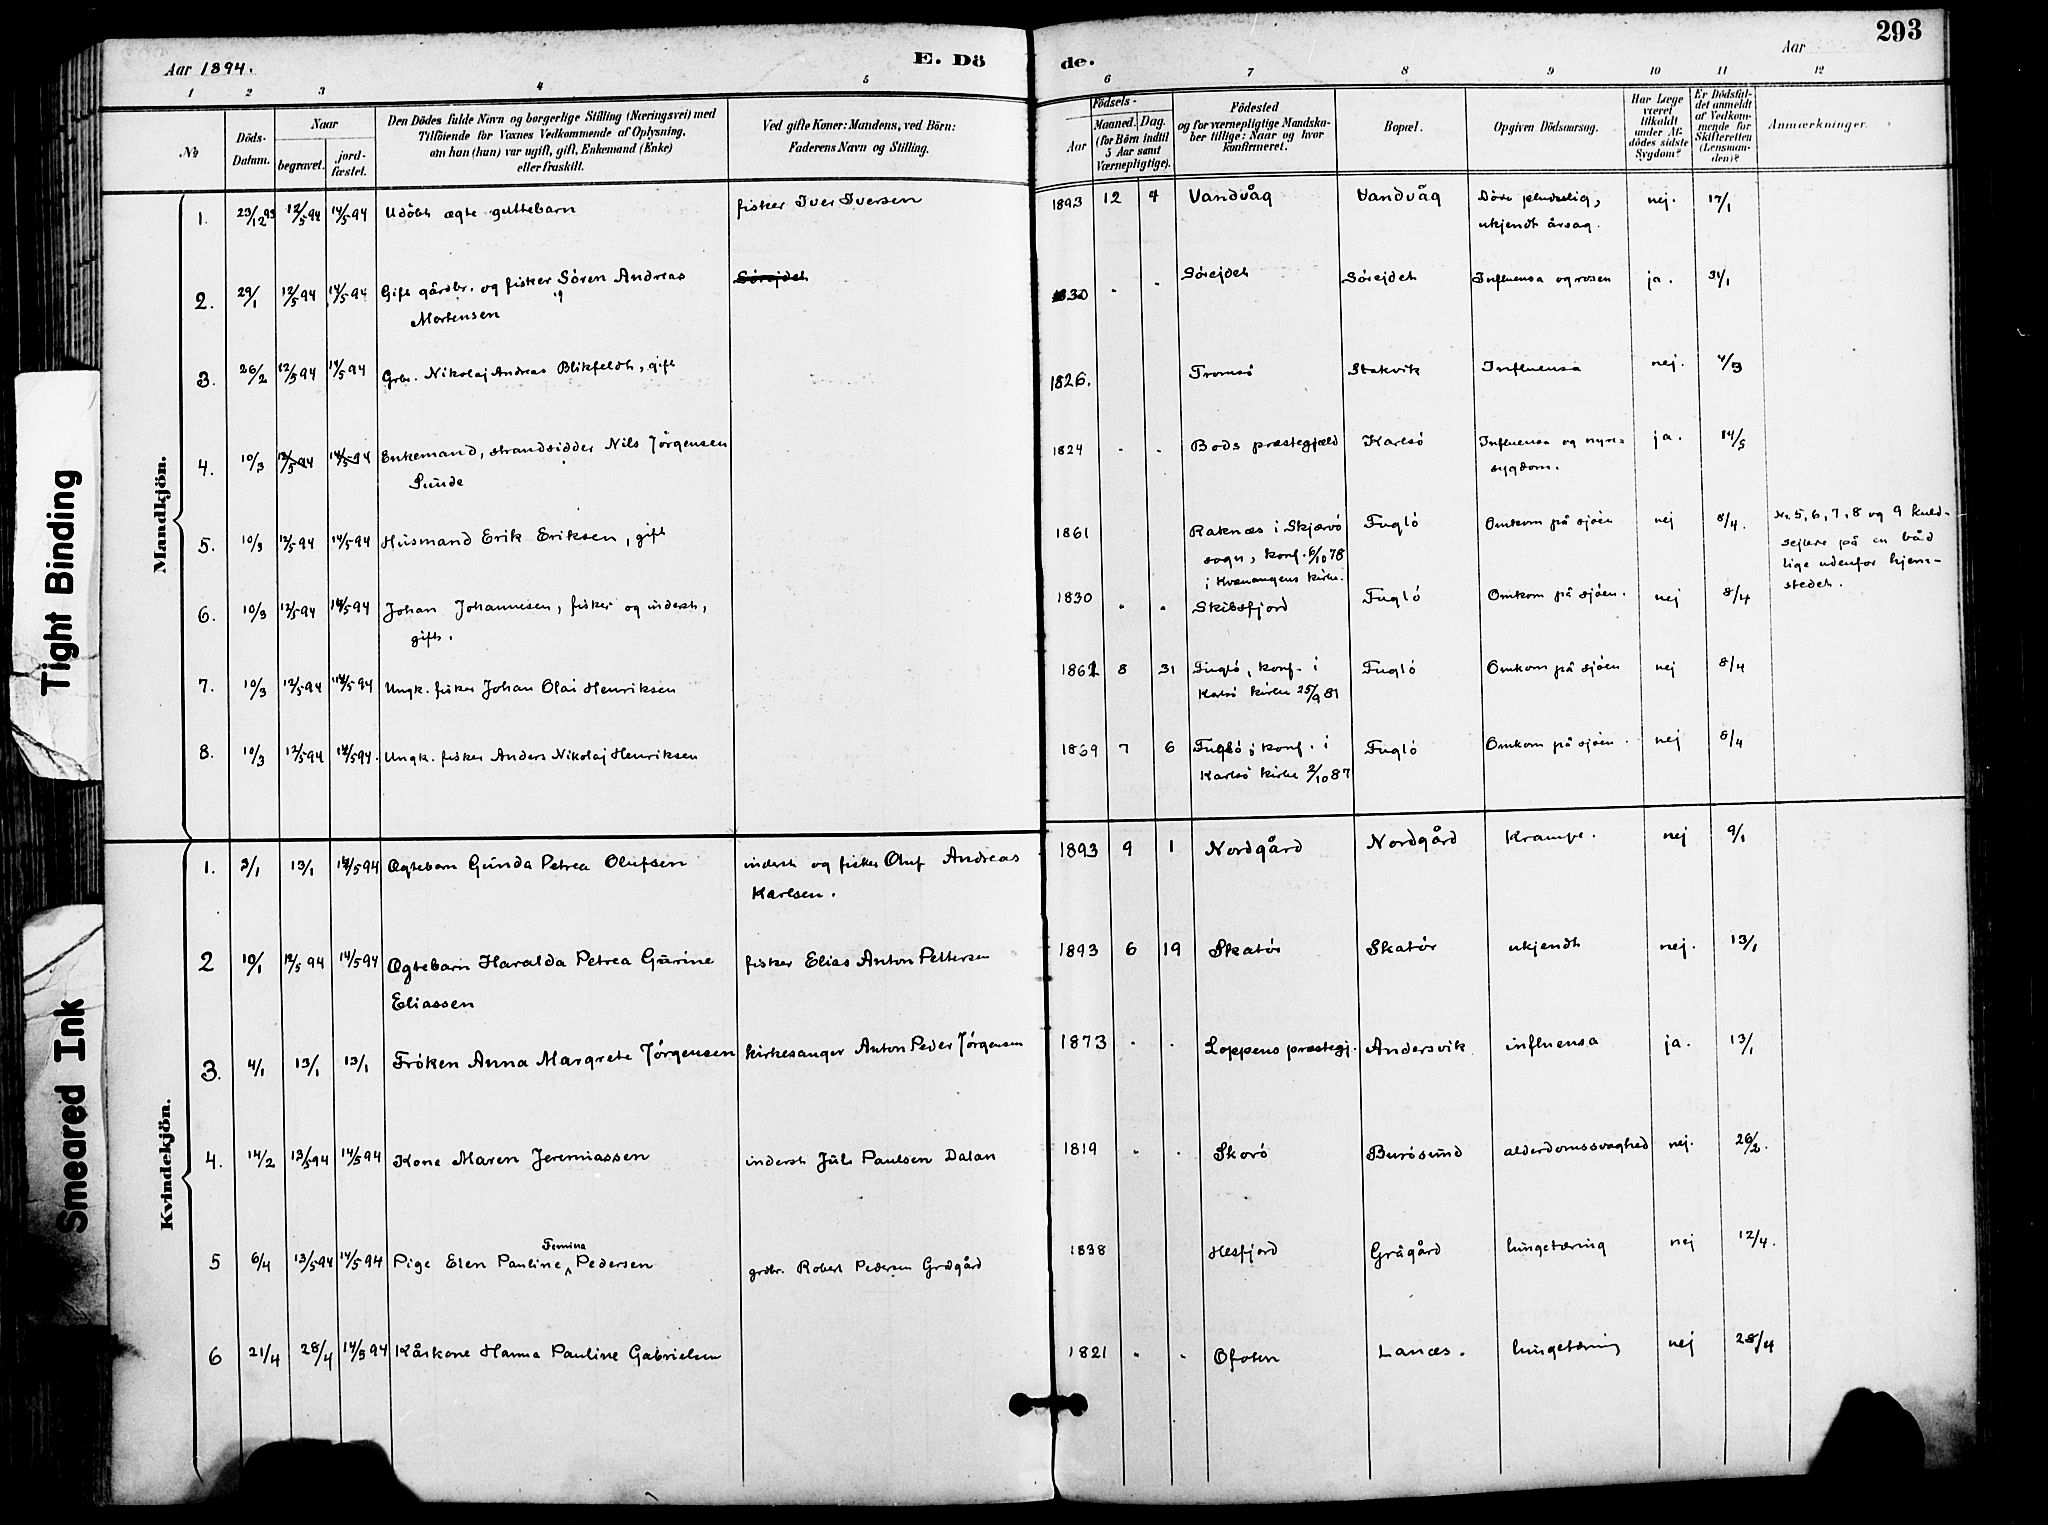 293
Aar 1894.
E. Dö
de.
Aar
1 2 3 4 5 6 7 8 9 10 11 12
No
Döds-Datum.
Naar
begravet.
jord-fæstet.
Den Dödes fulde Navn og borgerlige Stilling (Næringsvei) med
Tilföiende for Voxnes Vedkommende af Oplysning,
om han (hun) var ugift, gift, Enkemand (Enke)
eller fraskilt.
Ved gifte Koner: Mandens, ved Börn:
Faderens Navn og Stilling.
Födsels-
Aar
Maaned. Dag.
(for Börn indtil
5 Aar samt
Værnepligtige).
Födested
og for værnepligtige Mandska-
ber tillige: Naar og hvor
konfirmeret.
Bopæl.
Opgiven Dödsaarsag.
Har Læge
været
tilkaldt
under Af-
dödes sidste
Sygdom?
Er Dödsfal-
det anmeldt
af Vedkom-
mende for
Skifteretten
(Lensman-
den)?
Anmærkninger.
Mandkjön.
1. 23/12 93 12/5 94 14/5 94 Udöbt ægte guttebarn fisker Iver Iversen 1893 12 4 Vandvåg Vandvåg Döde pludselig, nej. 17/1
ukjendt årsag.
2. 29/1 12/5 94 14/5 94 Gift gårdbr. og fisker Sören Andreas Sörejdet 1830 " " Sörejdet Sörejdet Influensa og rosen ja. 31/1
Mortensen
3. 26/2 12/5 94 14/5 94 Grbr. Nikolaj Andreas Blikfeldt, gift 1826. Tromsö Stakvik Influensa nej. 4/3
4. 10/3 12/5 94 14/5 94 Enkemand, strandsidder Nils Jörgensen 1824 " " Bods præstegjæld Karlsö Influensa og nyre- ja. 14/5
Sunde
sygdom.
5. 10/3 12/5 94 14/5 94 Husmand Erik Eriksen, gift 1861 Raknæs i Skjærvö Fuglö Omkom på sjöen nej 8/4. Nr. 5, 6, 7, 8 og 9 kuld-
sogn, konf. 6/10 78
sejlere på en båd
i Kvænangens kirke.
lige udenfor hjem-
stedet.
6. 10/3 12/5 94 14/5 94 Johan Johannesen, fisker og inderst, 1830 " " Skibsfjord Fuglö Omkom på sjöen. nej 8/4
gift.
7. 10/3 12/5 94 14/5 94 Ungk. fisker Johan Olai Henriksen 1861 8 31 Fuglö, konf. i Fuglö Omkom på sjöen nej 8/4
Karlsö kirke 25/9 81
8. 10/3 12/5 94 14/5 94. Ungk. fisker Anders Nikolaj Henriksen 1869 7 6 Fuglö, konf. i Fuglö Omkom på sjöen. nej 8/4
Karlsö kirke 2/10 87
Kvindekjön.
1. 3/1 13/1 14/5 94 Ægtebarn Gunda Petrea Olufsen inderst og fisker Oluf Andreas 1893 9 1 Nordgård Nordgård Krampe. nej 9/1
Karlsen.
2 10/1 12/5 94 14/5 94 Ægtebarn Haralda Petrea Gurine fisker Elias Anton Pettersen 1893 6 19 Skatör Skatör ukjendt nej. 13/1
Eliassen
3. 4/1 13/1 13/1 Fröken Anna Margrete Jörgensen kirkesanger Anton Peder Jörgensen 1873 " " Loppens præstegj. Andersvik influensa ja. 13/1
4. 14/2 13/5 94 14/5 94 Kone Maren Jeremiassen inderst Juls Paulsen Dalan 1819 " " Skorö Burösund alderdomssvaghed nej. 26/2.
5 6/4 13/5 94 14/5 94 Pige Elen Pauline Femina Pedersen grdbr. Robert Pedersen Grågård 1838 Hesfjord Grågård lungetæring nej 12/4.
6 21/4 28/4 14/5 94 Kårkone Hanna Pauline Gabrielsen 1821 " " Ofoten Lanæs. lungetæring nej 28/4
Tight Binding
Smeared Ink